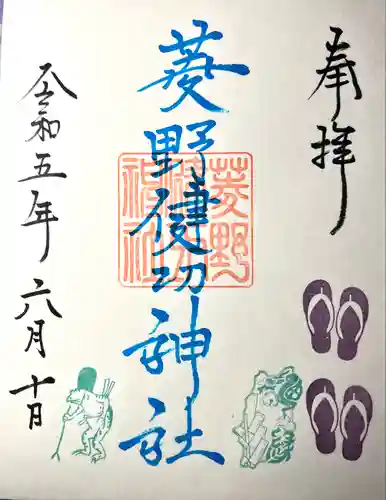 奉拝
菱野健功神社
菱野
健功
神社
令和五年六月十日